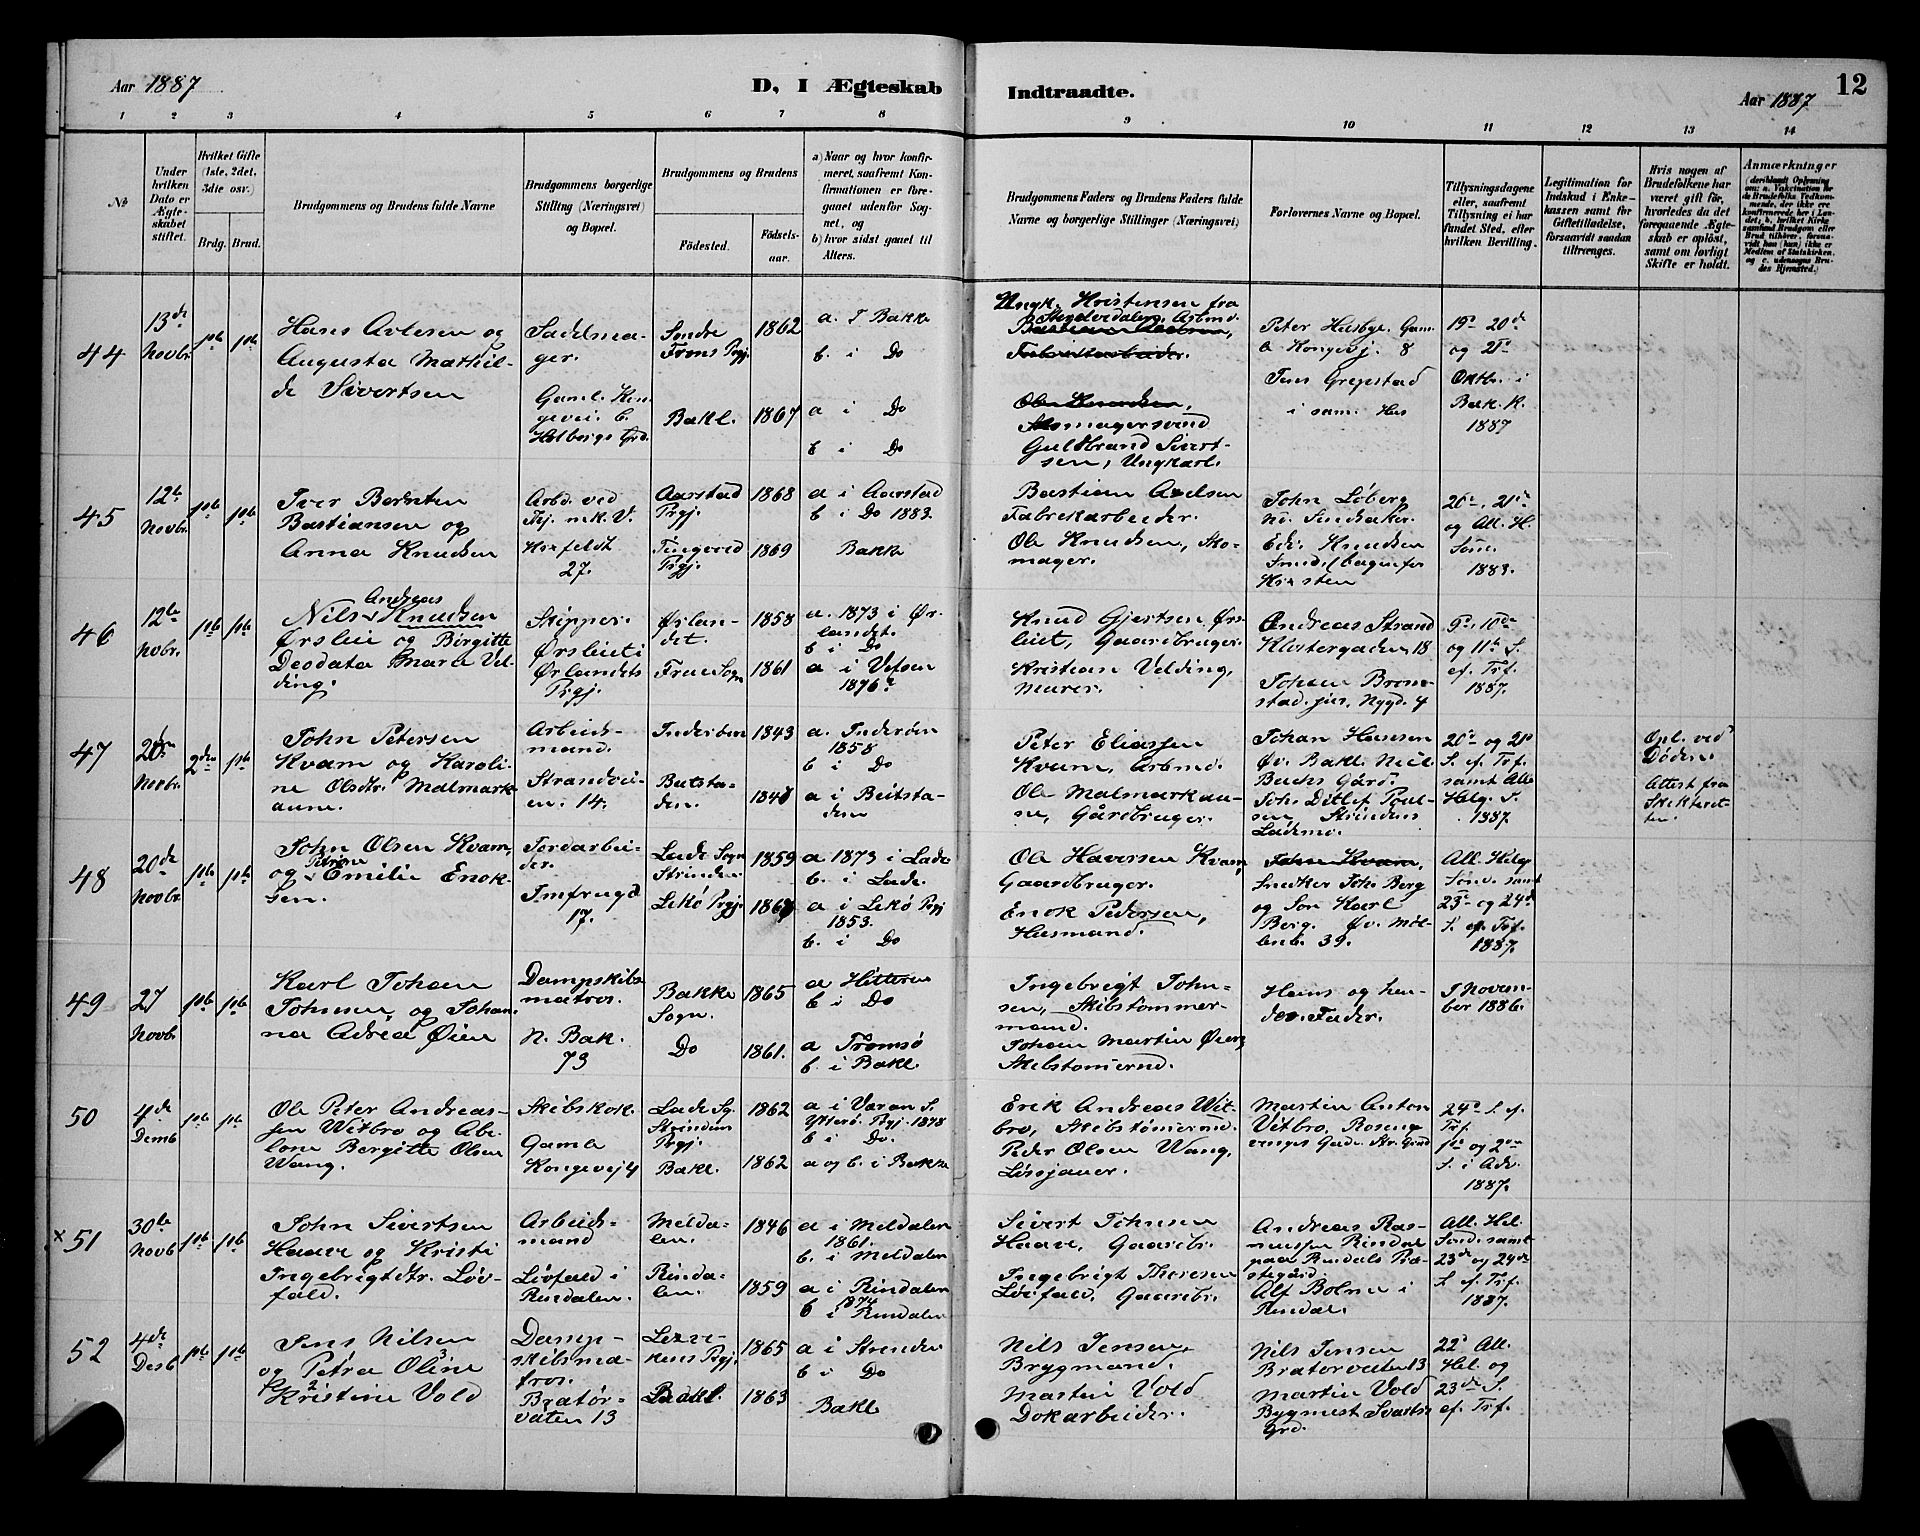 Aar 1887
D, I Ægteskab
Indtraadte.
Aar 1887
12
1 2 3 4 5 6 7 8
9 10 11 12 13 14
No
Under hvilken Dato er Ægteskabet stiftet.
Hvilket Gifte (1ste, 2det, 3die osv.)
Brdg. Brud.
Brudgommens og Brudens fulde Navne
Brudgommens borgerlige Stilling (Næringsvei) og Bopæl.
Brudgommens og Brudens
Fødested.
Fødsels-aar.
a) Naar og hvor konfirmeret, saafremt Konfirmationen er foregaaet udenfor Sognet, og
b) hvor sidst gaaet til Alters.
Brudgommens Faders og Brudens Faders fulde Navne og borgerlige Stillinger (Næringsvei)
Forlovernes Navne og Bopæl.
Tillysningsdagene eller, saafremt Tillysning ei har fundet Sted, efter hvilken Bevilling.
Legitimation for Indskud i Enkekassen samt for Giftetilladelse, forsaavidt saadan tiltrænges.
Hvis nogen af Brudefolkene har været gift før, hvorledes da det foregaaende Ægteskab er opløst, samt om lovligt Skifte er holdt.
Anmærkninger
44
13de Novbr.
1ste 1ste
Hans Avlesen og
Augusta Mathil-
de Sivertsen
Sadelma-
ger.
Gaml. Kon-
gevei 6
Holbergs Grd.
Søndre
Frons Prgj.
1862
Bakl. 1867
a. I Bakke
b. i Do
a i Do
b i Do
Ungk. Kristensen fra
Bastian Axelsen,
Fabrikarbeider.
Ole Knudsen,
Skomagersvend
Guldbrand Sivert-
sen, Ungkarl.
Peter Husbye. Gam-
le Kongevj. 8
Jens Grepstad
i sam. Hus
19de 20de
og 21de
Oktbr. i
Bak. K.
1887
45
12te Novbr.
1ste 1ste
Iver Berntin
Bastiansen og
Anna Knudsen
Arbd. ved
27.
Aarstad
Prgj.
1868
Tingvold
Prgj.
1869
a i Aarstad
b i Do 1883.
Bakke
Bastian Axelsen
Fabrekarbeider.
Ole Knudsen, Sko-
mager.
John Løberg
Edv. Knudsen
20de, 21de
og All. H.
Sønd.
1883.
46
12te Nobr.
1ste 1ste
Andreas
Nils Knudsen
Ørsleie og Birgitte
Deodata Mara Vel-
ding.
Skipper.
Ørsleiet i
Ørlandets
Prgj.
Ørlan-
det. 1858
Frue Sogn 1861
a. 1873 i Ør-
landet.
b i Do
a i Vefsen
1876
Knud Gjertsen Ørs-
leiet, Gaardbruger.
Kristian Velding,
murer.
Andreas Strand
Klostergaden 18
Johan Brom-
stad jun. Nygd. 4
9de, 10de
og 11te S.
ef. Trf.
1887.
47
20de Novbr.
2den 1ste
John Petersen
Kvam og Karoli-
ne Olsdtr. Malmark-
aune.
Arbeids-
mand.
Strandvei-
en. 14.
Inderøen 1843
Beitsta-
den.
a. Inderøen
1858
b i Do
a i Beitsta-
den
Peter Eliassen
Kvam, Arbmd.
Ole Malmarkau-
ne, Gårdbruger.
Johan Hansen
Øv. Bakl. Niel
Buchs Gård.
Joh. Ditlef Poul-
sen Strindens
Lademo.
20de og 21de
S. ef. Trf.
samt Alle
Helg. S.
1887.
Opl. ved
Døden.
Attest fra
Skifteret-
ten.
48
20de Novbr.
1ste 1ste
John Olsen Kvam,
Petrine
og Emilie Enok-
sen.
Jordarbei-
der.
Jmfrugd
17.
Lade Sogn
Strinden 1859
Lekø Prgj.
a 1873 i Lade
b. i Lade.
a i Lekø Prgj
1853.
b. i Do
Ole Haversen Kvam,
Gaardbruger.
Enok Pedersen,
Husmand.
John Kvam,
Snedker Joh. Berg
og Søn Karl
Berg. Øv. Møl-
lenb. 39.
All. Helg
Sønd. samt
23de og 24de
S. ef. Trf.
1887.
49
27 Novb.
1ste 1ste
Karl Johan
Johnsen, og Johan-
na Adrea Øien
Dampskibs
matros.
N. Bak.
73
Bakke
Sogn. 1865
Do 1861.
a Hitteren
b i Do
a Tromsø
b. i Bakl.
Ingebrigt John-
sen, Skibstømmer-
mand.
Johan Martin Øien,
Skibstømernd.
Hans og hen-
des Fader.
I Novem-
ber 1886.
50
4de Demb
1ste 1ste
Ole Peter Andreas-
sen Witbro og Abe-
lone Bergitte Olsen
Wang.
Skibskok.
Gamle
Kongevej 4
Lade Sg.
Strinden
Prgj. 1862
Bakl. 1862
a i Varan S.
Ytterø Prgj. 1878
b i Do.
a og b. i Bakke
Erik Andreas Wit-
bro, Skibstømernd.
Peder Olsen Wang,
Løssjauer.
Martin Anton
Vitbro, Rosen-
24de S. ef.
Trf.
1ste og 2den
S. i Adv.
1887.
x 51
30te Novb
1ste 1ste
John Sivertsen
Haave og Kristi
Ingebrigtdtr. Løv-
fald.
Arbeids-
mand
Løvfald i
Rindalen.
Melda-
len. 1846
Rinda-
len. 1859
a i Meldalen
1861.
b. i Meldalen
a i Rindalen
1874
b i Rindalen
Sivert Johnsen
Haave, Gaardbr.
Ingebrigt Theresen
Løvfald, Gaardbr.
Andreas Ras-
mussen Rindal
paa Rindals Præ-
stegård.
Alf Bolme i
Rindal.
All. Hel.
Sønd. samt
23de og 24de
S. ef. Trf.
1887.
52
4de Desb
1ste 1ste
Jens Nilsen
og Petra Oline
Kristine Vold
Damp-
skibsma-
tros.
Bratør-
vaten 13
Lexvi-
kens Prgj. 1865
Bakl. 1863
a i Strinden
b i Do
Bakl
Nils Jensen,
Brygmand.
Martin Vold
Dokarbeider.
Nils Jensen
Bratørvaten 13
Martin Vold
Bygmest. Svartes
Grd.
22de All.
Hel. og
23de S.
ef. Trf.